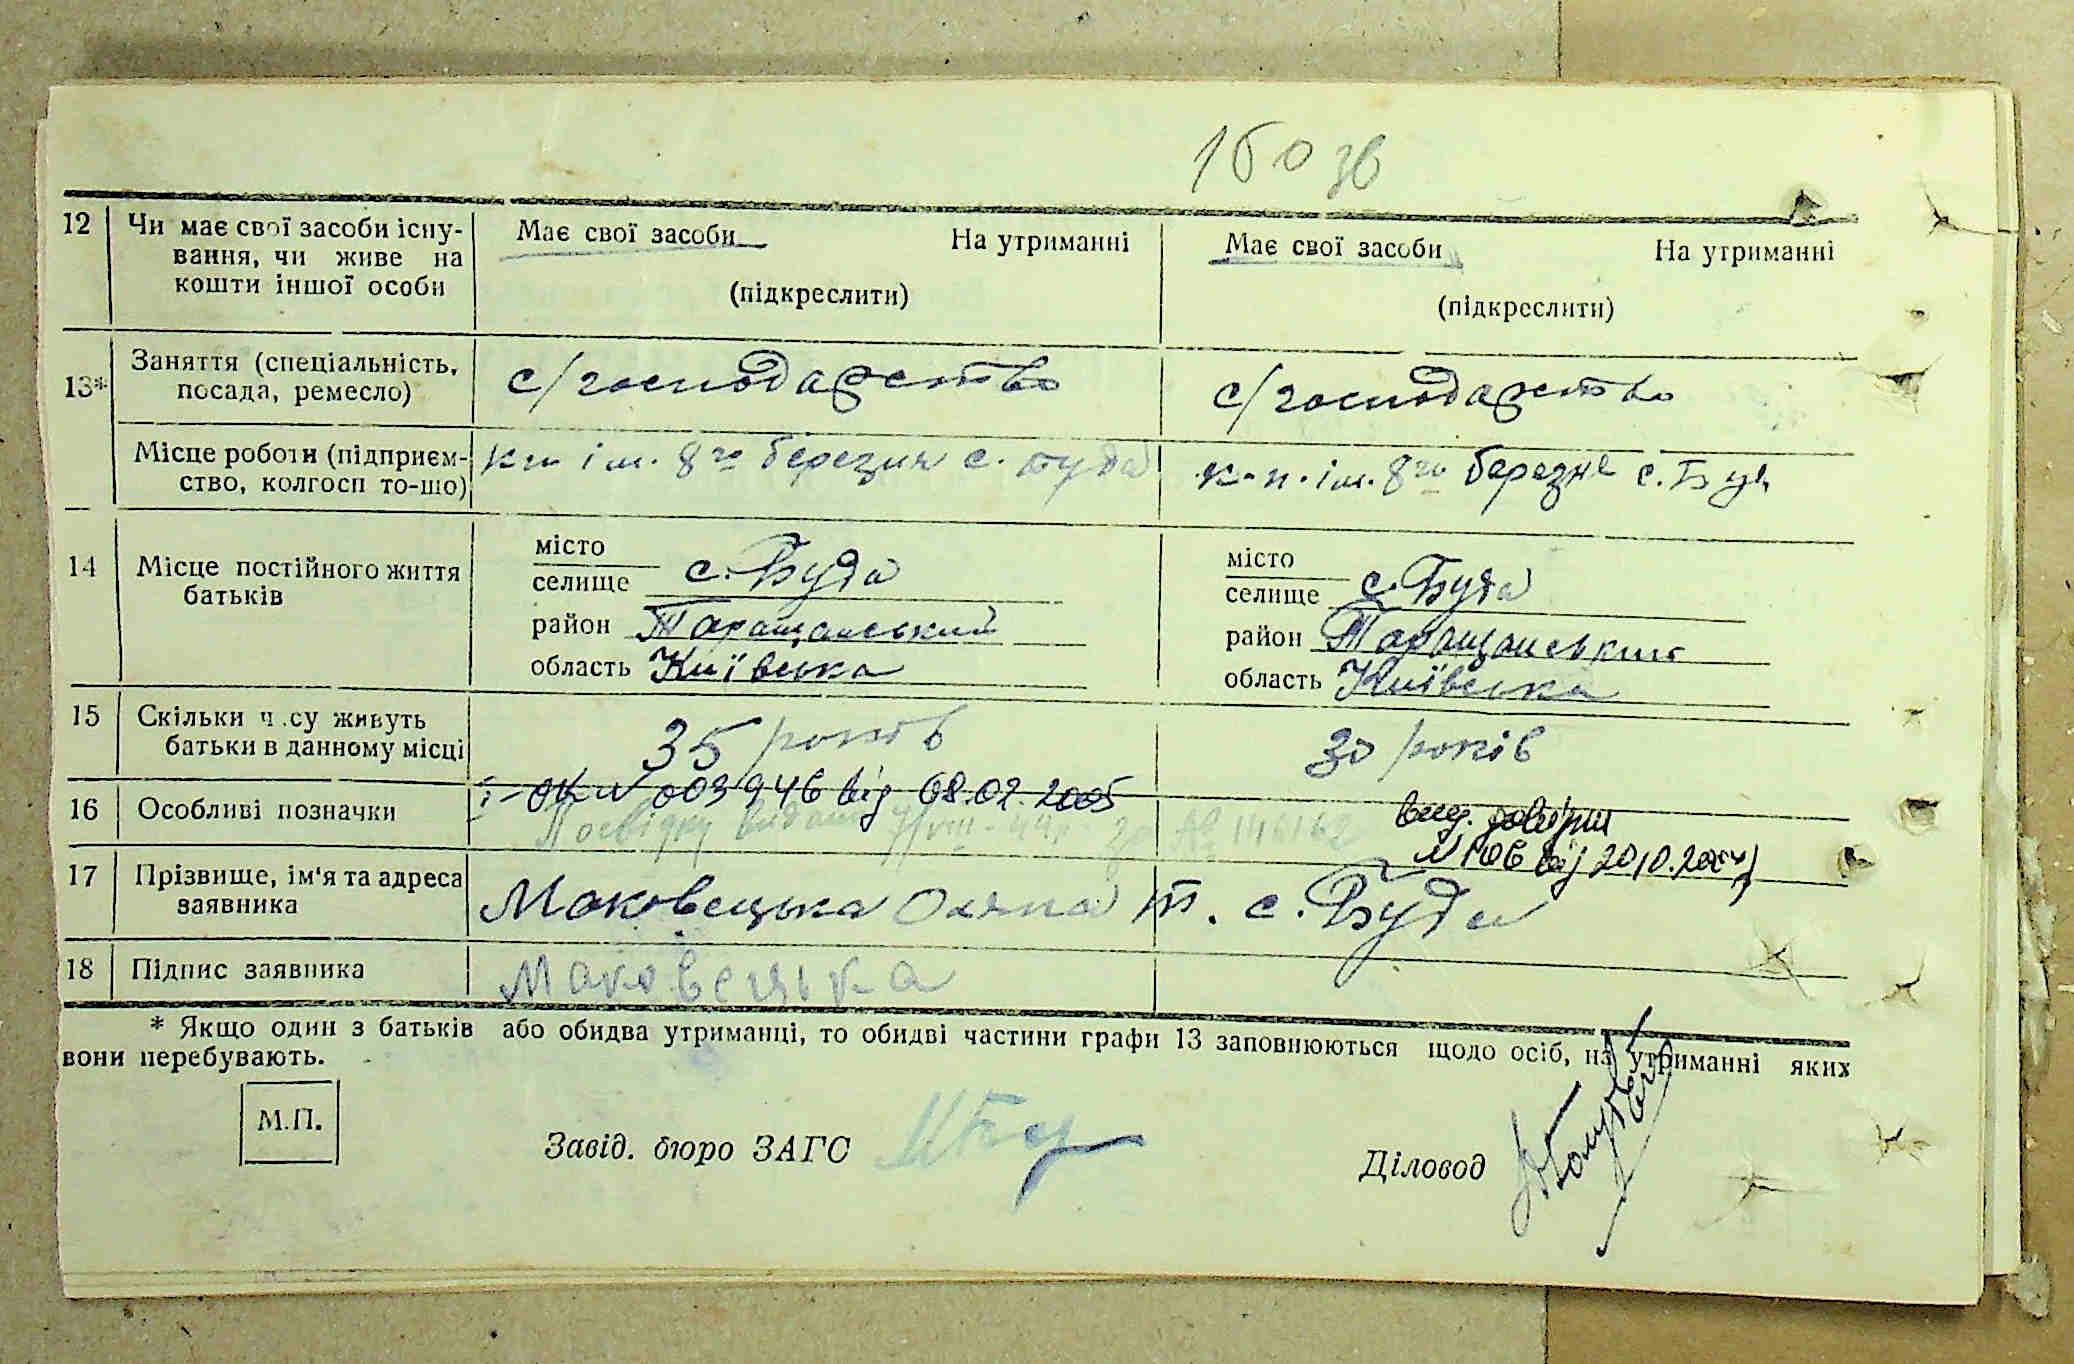 160 зв
12 Чи має свої засоби існу- Має свої засоби На утриманні Має свої засоби На утриманні
вання, чи живе на
кошти іншої особи (підкреслити) (підкреслити)
13* Заняття (спеціальність, с/господарство с/господарство
посада, ремесло)
Місце роботи (підприєм- к-п ім. 8го березня с. Буда к-п. ім. 8го березня с. Буда
ство, колгосп то-що)
14 Місце постійного життя місто місто
батьків селище с. Буда селище с. Буда
район Таращанський район Таращанський
область Київська область Київська
15 Скільки часу живуть 35 років 30 років
батьки в данному місці
16 Особливі позначки 003946 від 08.02.2005
Посвідку видано № 146162
довіри
№ 106 від 20.10.2004
17 Прізвище, ім'я та адреса Маковецька Оляна Т. с. Буда
заявника
18 Підпис заявника Маковецька
* Якщо один з батьків або обидва утриманці, то обидві частини графи 13 заповнюються щодо осіб, на утриманні яких
вони перебувають.
М.П.
Завід. бюро ЗАГС Діловод